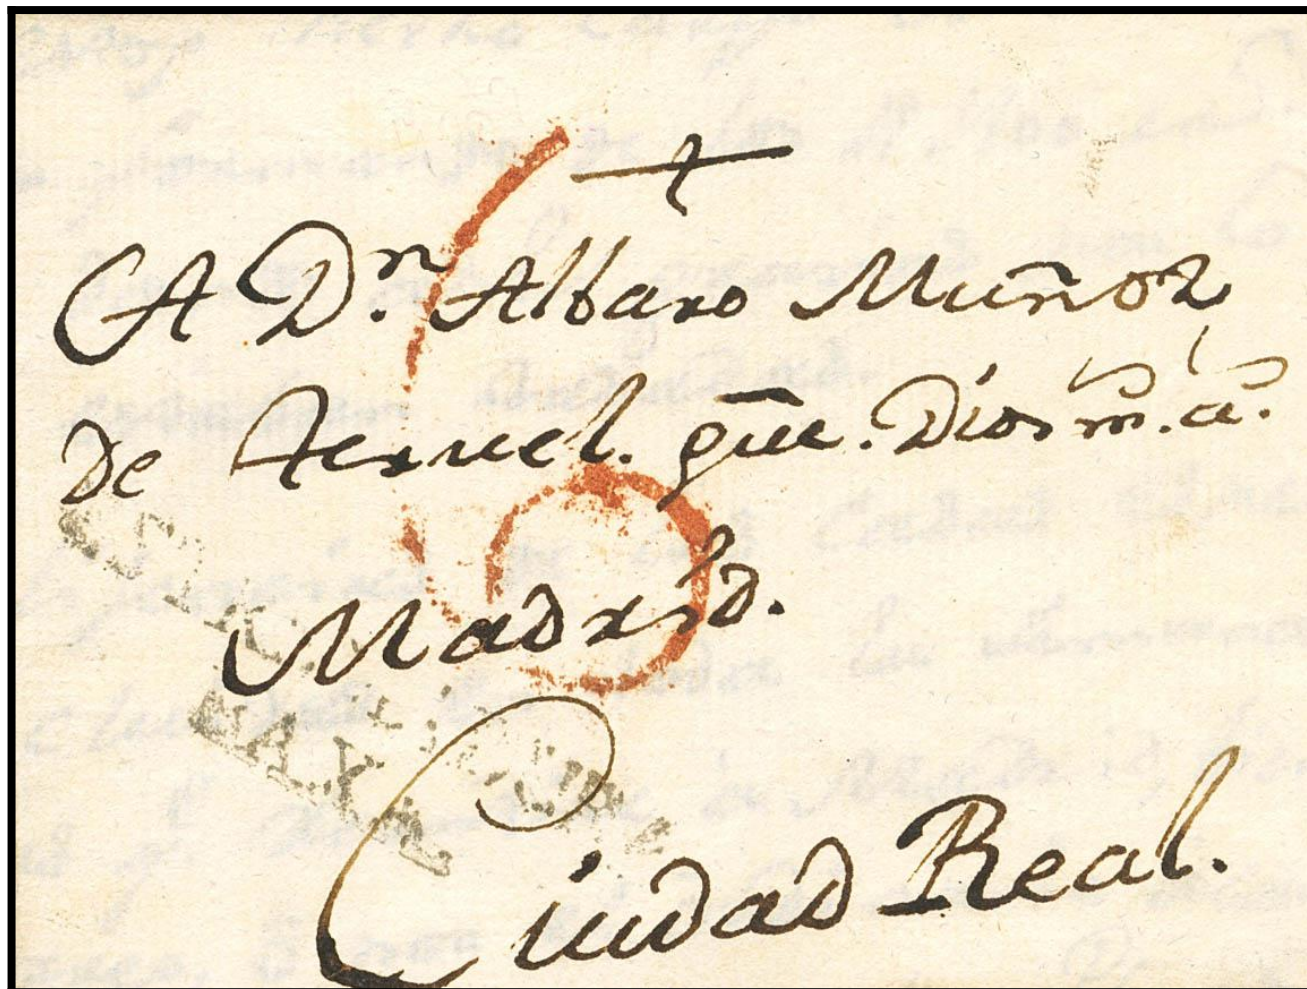 A Dn. Albaro Muñoz
de Teruel. gūe. Dios ms. as.
Madrid.
Ciudad Real.